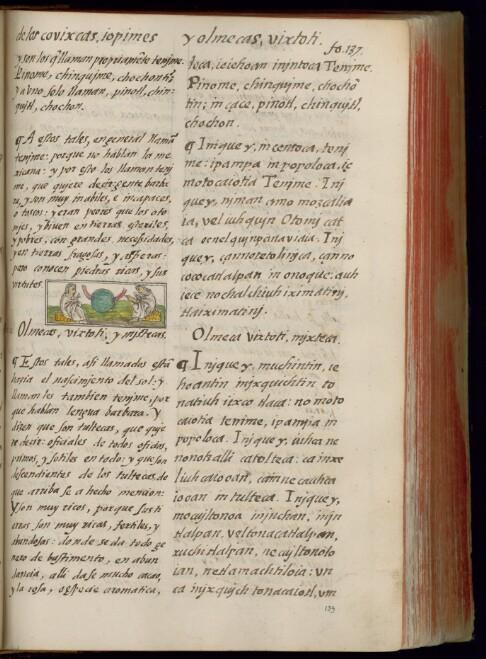 de los covixcas, iopimes
y son los q̃ llaman propriamẽte tenjme.
Pinome, chinquijme, chochonti
y a vno solo llaman, pinotl, chin-
quitl, chochon.
¶ A estos tales, en general llamã
tenjme: porque no hablan la me
xicana: y por esto los llaman tenj
me, que quiere dezir gente barba
ra, y son muy inabiles, e incapaces,
o toscos: y eran peores que los oto
mjes, y biuen en tierras esteriles,
y pobres, con grandes necessidades,
y en tierras fragosas, y asperas:
pero conocen piedras ricas, y sus
virtutes.
Olmecas, vixtoti, y mjstecas.
¶ Estos tales, asi llamados estã
hazia el nascimjento del sol: y
llaman les tambien tenjme, por
que hablan lengua barbara. y
dizen que son tultecas, que quje
re dezir: oficiales de todos oficios,
primos, y sotiles en todo: y que son
descendientes de los tultecas, de
que arriba se a hecho mencion:
y son muy ricos, porque sus ti
erras son muy ricas, fertiles, y
abundosas: donde se da todo ge
nero de bastimento, en abun
dancia, alli dase mucho cacao,
y la rosa, o especie aromatica,
y olmecas, vixtoti.
fo. 137.
teca, ie iehoan in jntoca Tenjme.
Pinome, chinquijme, chochõ
tin; in çace, pinotl, chinquitl,
chochon.
¶ Injque y, in centoca, tenj
me: ipampa in popoloca, ic
motocaiotia Tenjme. Inj
que y, njman aymo mozcalia
ia, vel iuhquin Otomj cat
ca oc nel quinpanavidia. Inj
que y, çan no tetolinjca, can no
cococatlalpan in onoque. auh
iece no chalchiuh iximatinj,
tlaiximatinj.
Olmeca vixtoti, mjxteca.
¶ Injque y, muchintin, ie
hoantin injxquichtin to
natiuh ixco tlaca: no moto
caiotia tenjme, ipampa in
popoloca. Injque y, iuhca ne
nonotzalli ca tolteca: ca inxe
liuhcaiooan, camnecauhca
iooan in tulteca. Injque y,
mocujltonoa injnchan, injn
tlalpan, veltonacatlalpan,
xuchitlalpan, necujltonolo
ian, netlamachtiloia: vn
ca injxqujch tonacaiotl, vm
133